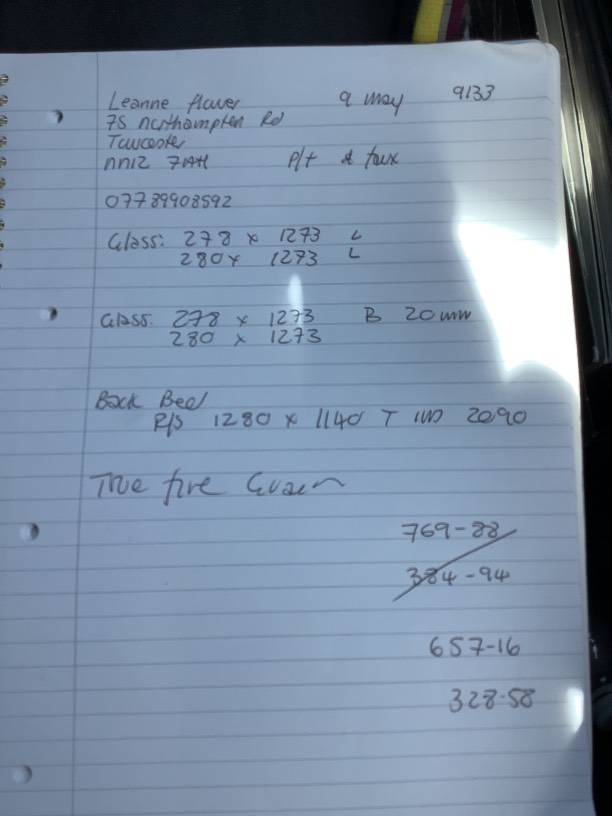 Leanne flower 9 may 9133
75 northampton Rd
Towcester
NN12 7AH P/t & faux
07789908592
Glass: 278 x 1273 L
280 x 1273 L
Glass: 278 x 1273 B 20mm
280 x 1273
Back Bed
R/S 1280 x 1140 T 2090
fire
769-88
384-94
657-16
328-58